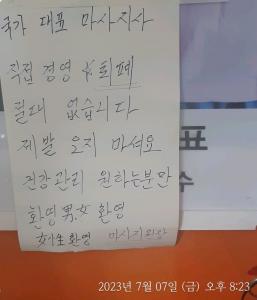 국가 대표 마사지사
직접 경영 퇴폐
절대 없습니다
제발 오지 마셔요
건강관리 원하는분만
환영 男, 女 환영
女生환영 마사지원장
표
수
2023년 7월 07일 (금) 오후 8:23